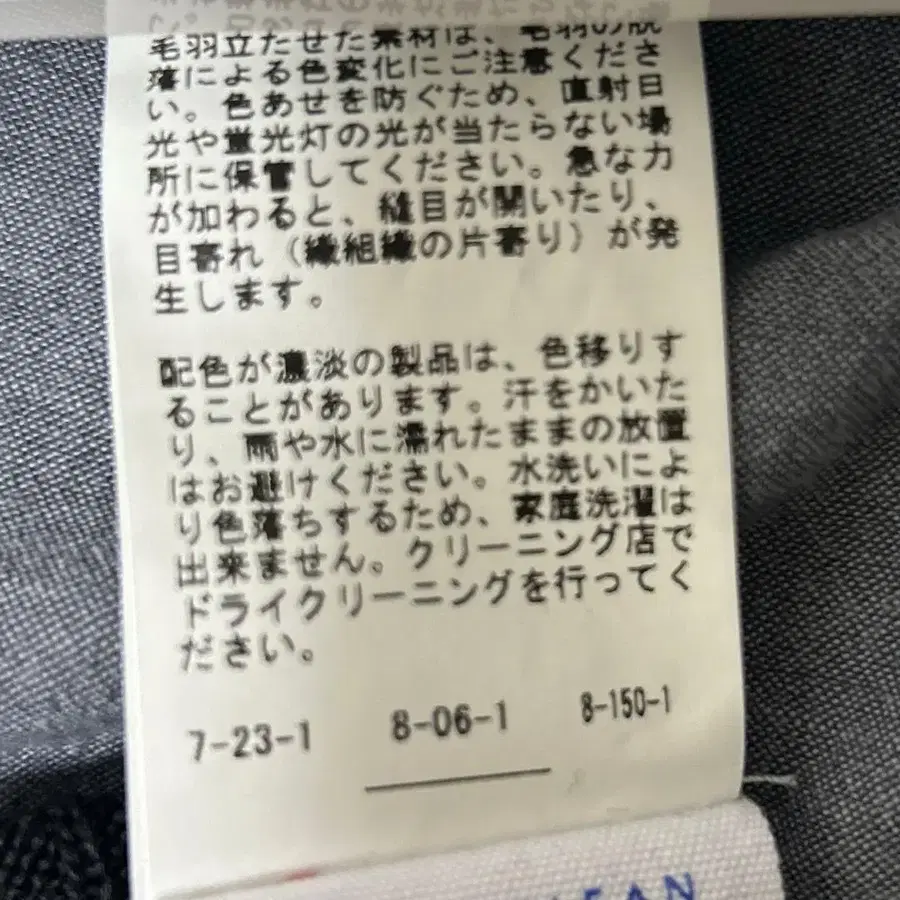 毛羽立たせた素材は、毛羽の脱
落による色変化にご注意くださ
い。色あせを防ぐため、直射日
光や蛍光灯の光が当たらない場
所に保管してください。急な力
が加わると、縫目が開いたり、
目寄れ（繊組織の片寄り）が発
生します。
配色が濃淡の製品は、色移りす
ることがあります。汗をかいた
り、雨や水に濡れたままの放置
はお避けください。水洗いによ
り色落ちするため、家庭洗濯は
出来ません。クリーニング店で
ドライクリーニングを行ってく
ださい。
7-23-1 8-06-1 8-150-1